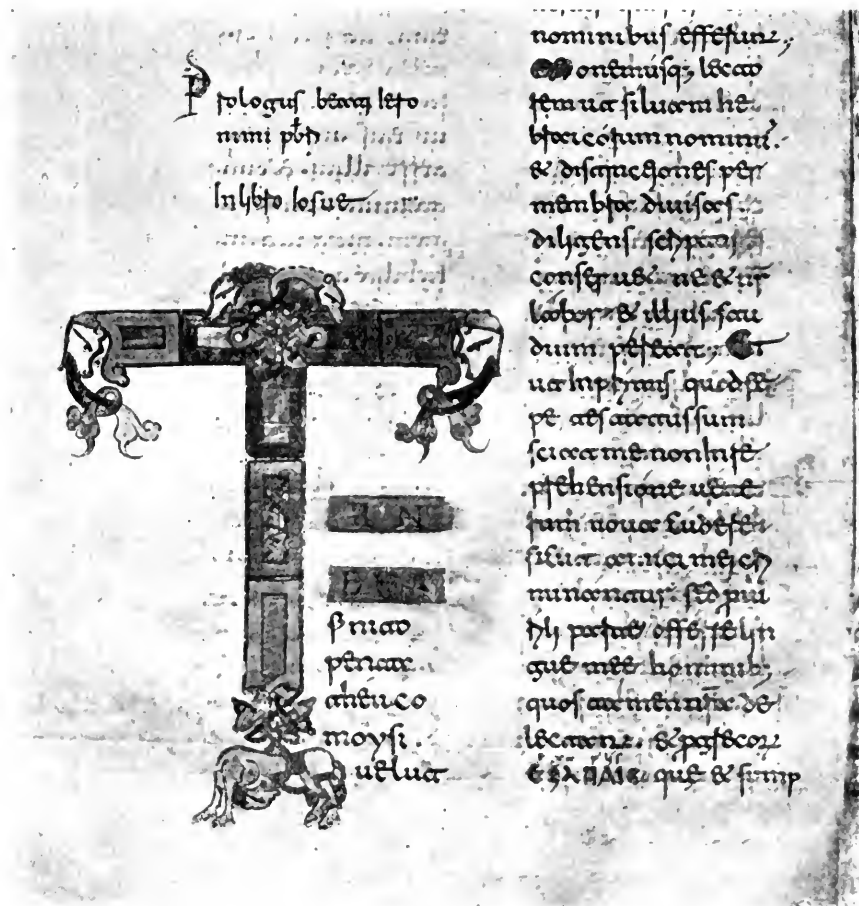 Prologus beati Iero
nimi pb̄ri
In libro Iosue
TAN
DEM
finito
penta
theuco
moysi
uelut
nominibus efferunt;
Monemusq; lecto
rem ut siluam he
braicorum nominū.
& distinctiones per
membra diuisas
diligens
conseruet ne & nr̄
labor & illius stu
dium pereat; Et
ut inprimis quod se
pe testatus sum
sciat me non inre
prehensione uete
rum noua cudere
sicut amici mei cri
minantur. sed pro ui
rili parte offerre lin
gue mee hominib;
quos tamen nr̄a de
lectant. & p grecorū
que & sump